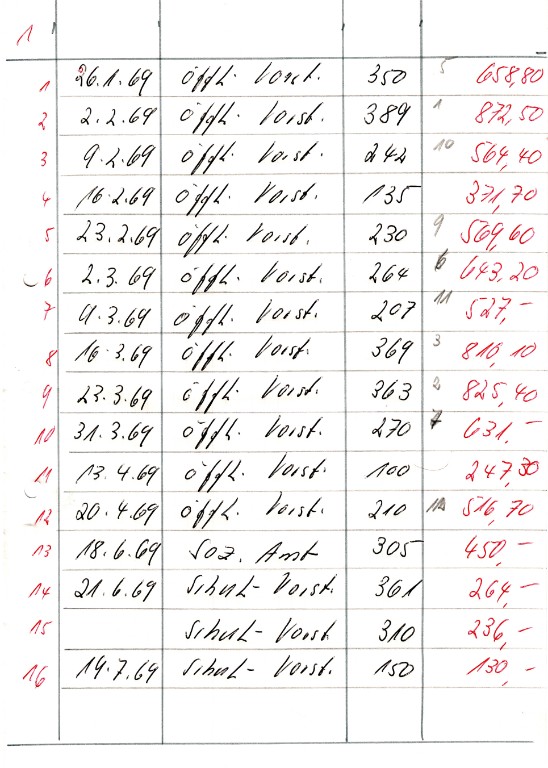 1
1 26.1.69 öfftl. Vorst. 350 5 658,80
2 2.2.69 öfftl. Vorst. 389 1 872,50
3 9.2.69 öfftl. Vorst. 242 10 564,40
4 16.2.69 öfftl. Vorst. 135 371,70
5 23.2.69 öfftl. Vorst. 230 9 569,60
6 2.3.69 öfftl. Vorst. 264 6 643,20
7 9.3.69 öfftl. Vorst. 207 11 527,-
8 16.3.69 öfftl. Vorst. 369 3 810,10
9 23.3.69 öfftl. Vorst. 363 2 825,40
10 31.3.69 öfftl. Vorst. 270 7 631,-
11 13.4.69 öfftl. Vorst. 100 247,30
12 20.4.69 öfftl. Vorst. 210 12 516,70
13 18.6.69 Soz. Amt 305 450,-
14 21.6.69 Schul-Vorst. 361 264,-
15 Schul-Vorst 310 236,-
16 19.7.69 Schul-Vorst. 150 130,-